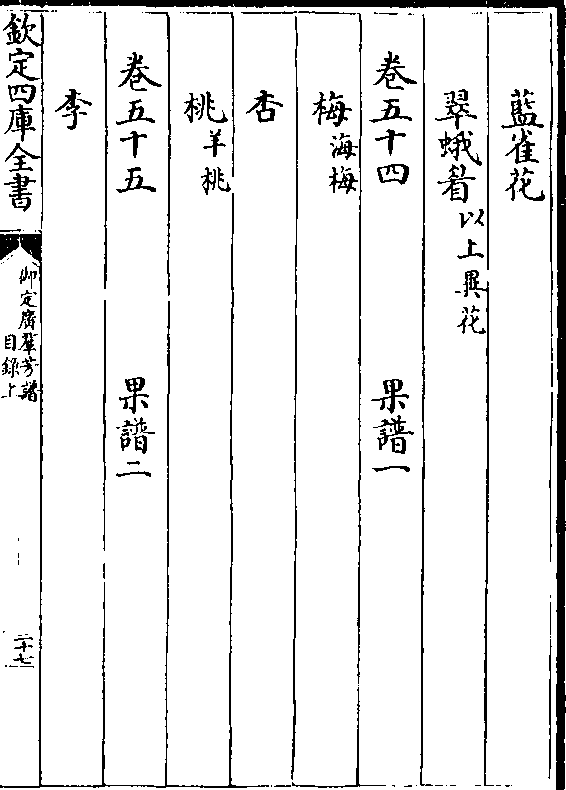 藍雀花
翠蛾眉以上異花
卷五十四 果譜一
梅海梅
杏
桃羊桃
卷五十五 果譜二
李
欽定四庫全書 御定廣羣芳譜目錄上 二十七